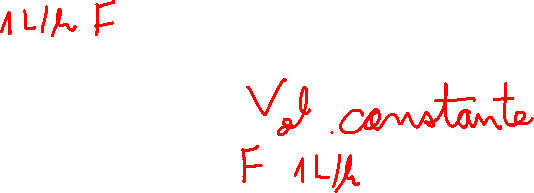 1L/h F
Vol. constante
F 1L/h